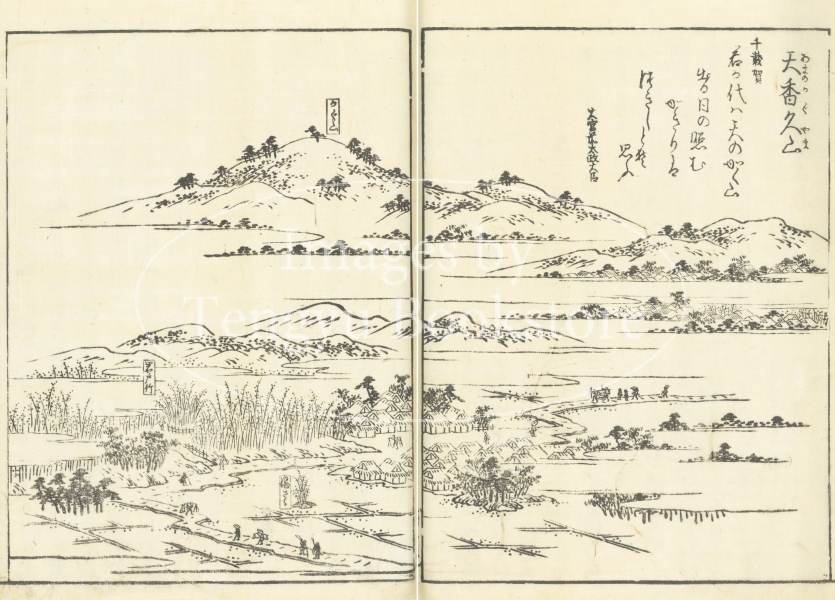 天香久山
あまのかぐやま
千載賀
君が代ハ天のかぐ山
出る日の照む
かぎりは
つきしとぞ
思ふ
大宮前太政大臣
かぐ山
Images by
Tengyu Bookstore